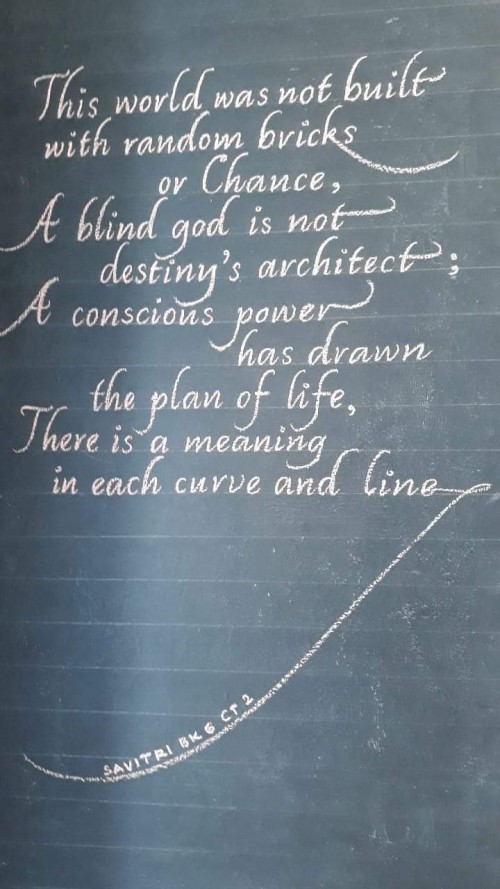 This world was not built
with random bricks
or Chance,
A blind god is not
destiny's architect;
A conscious power
has drawn
the plan of life,
There is a meaning
in each curve and line
SAVITRI BK 6 CT 2